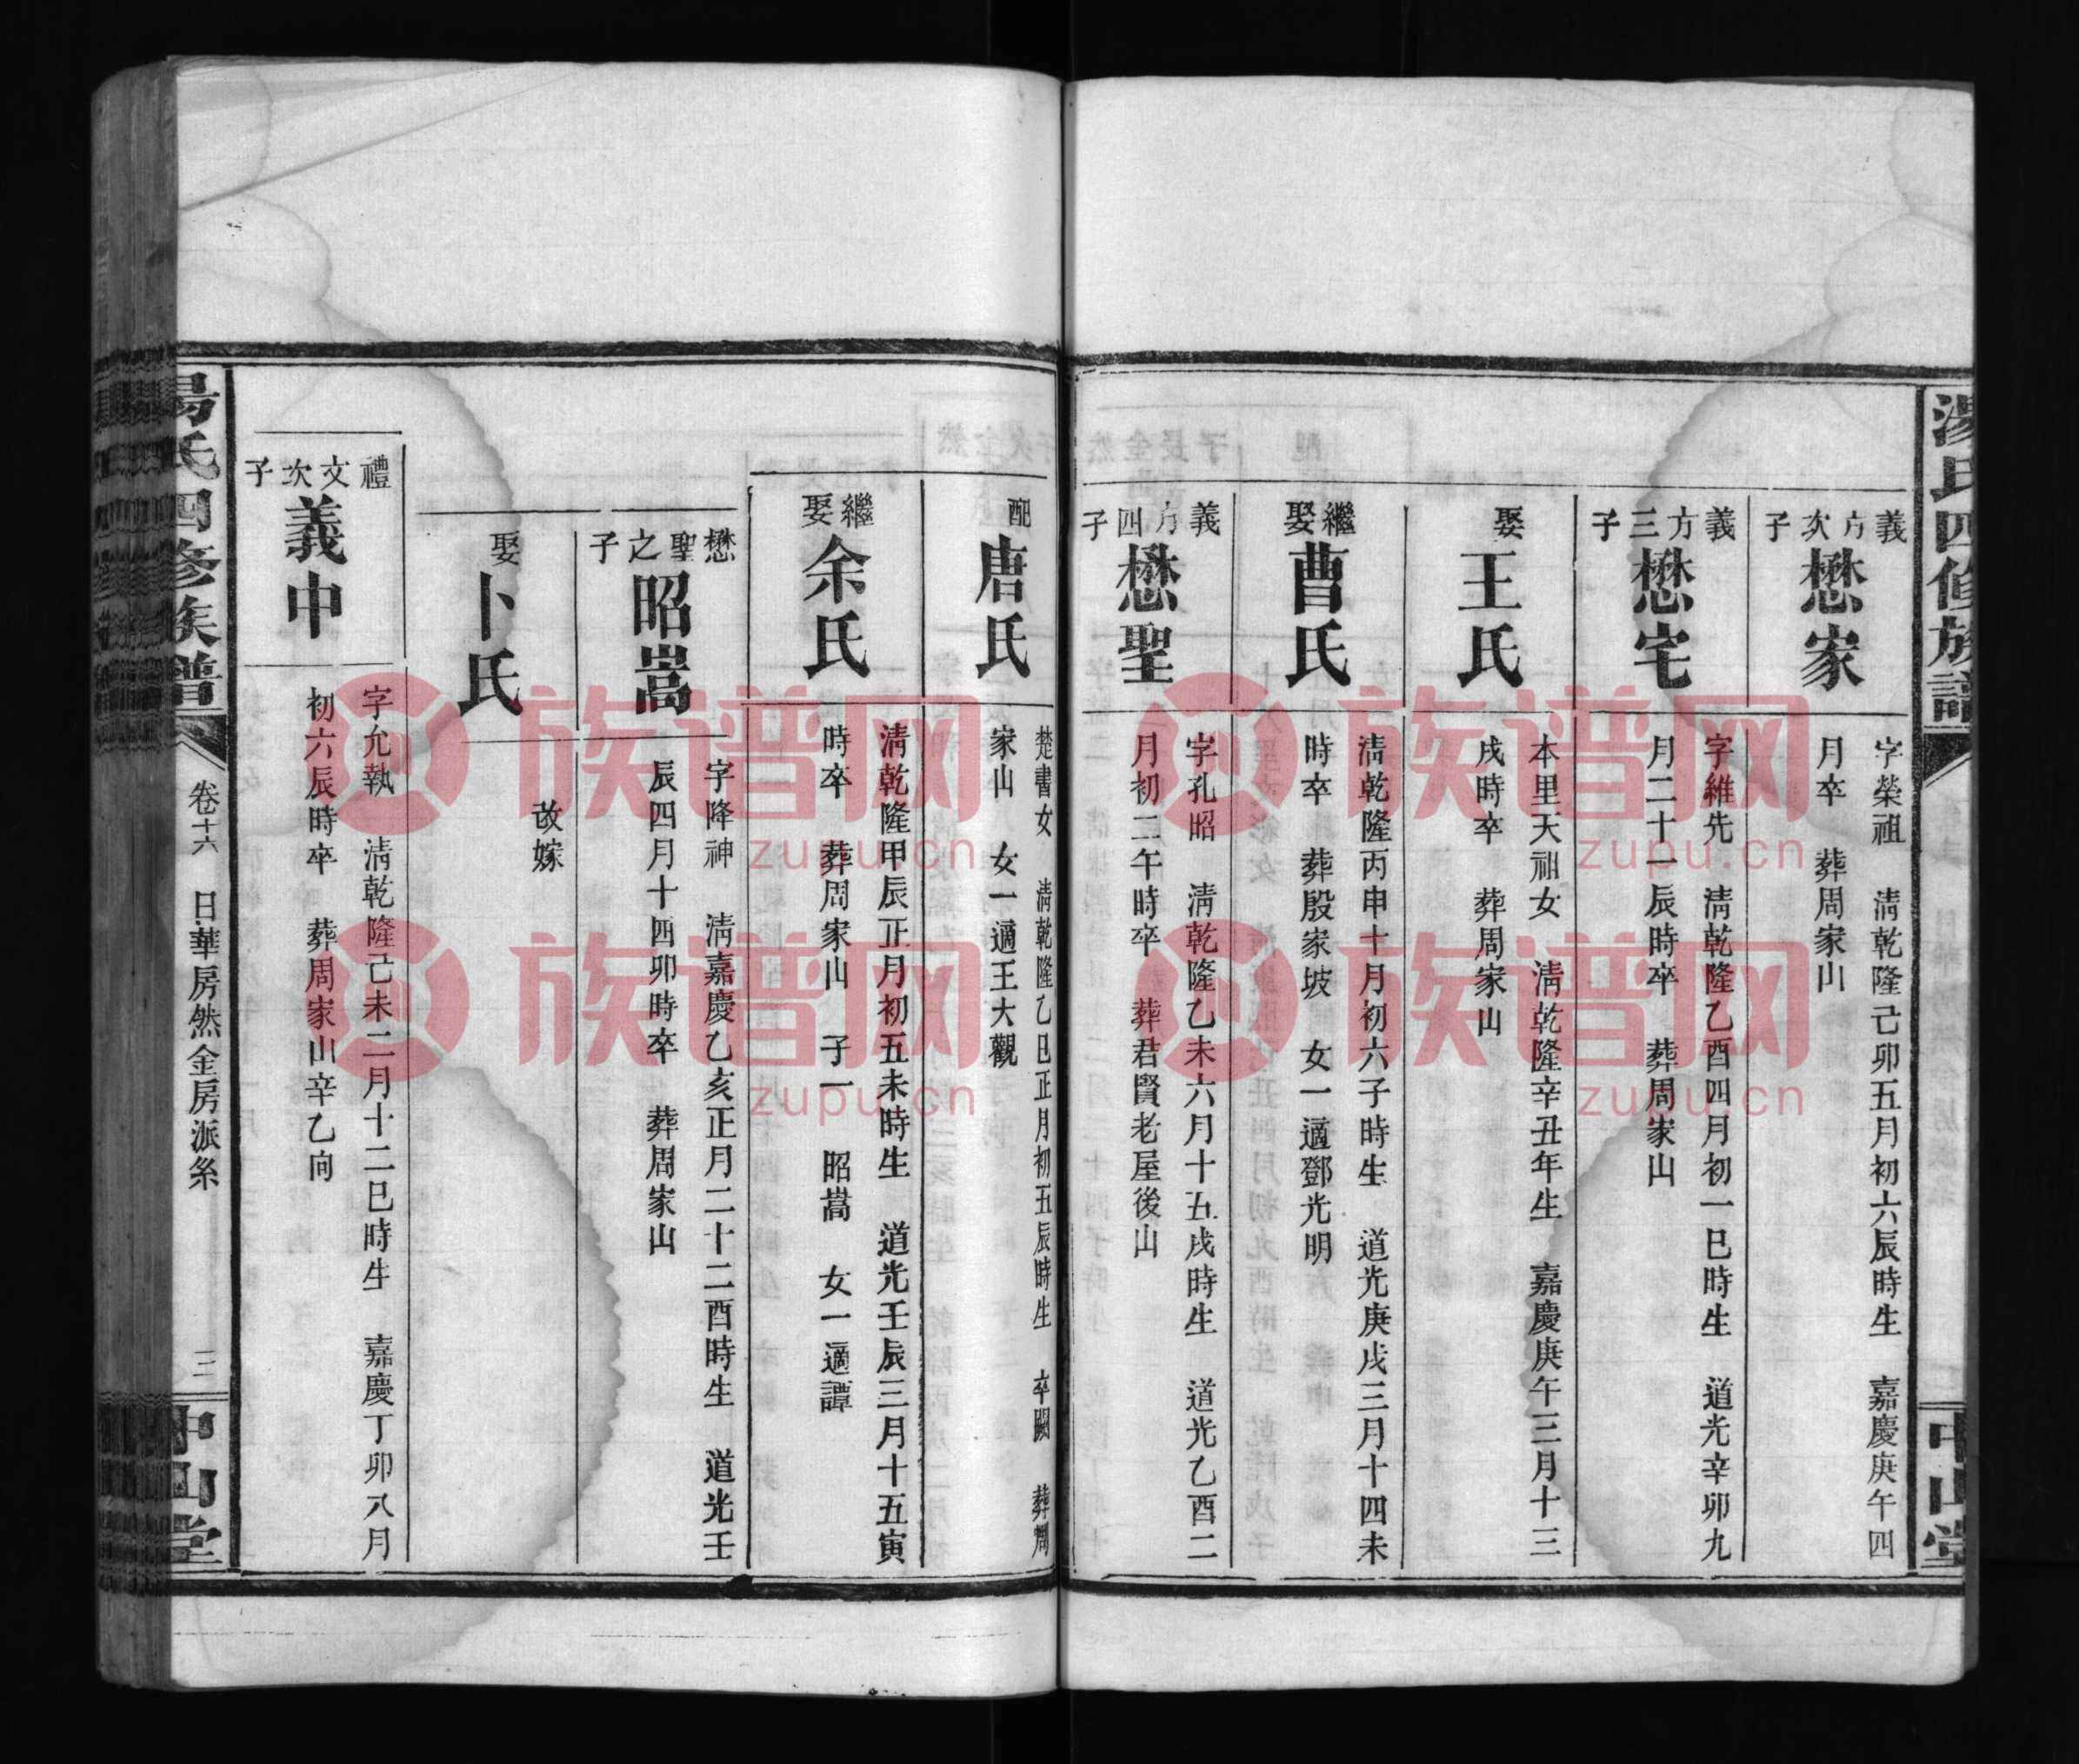 湯氏四修族譜
中山堂
義方次子
懋家
字榮祖 淸乾隆己卯五月初六辰時生 嘉慶庚午四
月卒 葬周家山
義方三子
懋宅
字維先 淸乾隆乙酉四月初一巳時生 道光辛卯九
月二十一辰時卒 葬周家山
娶
王氏
本里天祖女 淸乾隆辛丑年生 嘉慶庚午三月十三
戌時卒 葬周家山
繼娶
曹氏
淸乾隆丙申十月初六子時生 道光庚戌三月十四未
時卒 葬殷家坡 女一適鄧光明
義方四子
懋聖
字孔昭 淸乾隆乙未六月十五戌時生 道光乙酉二
月初二午時卒 葬君賢老屋後山
配
唐氏
楚書女 淸乾隆乙巳正月初五辰時生 卒闕 葬周
家山 女一適王大觀
繼娶
余氏
淸乾隆甲辰正月初五未時生 道光壬辰三月十五寅
時卒 葬周家山 子一 昭嵩 女一適譚
懋聖之子
昭嵩
字降神 淸嘉慶乙亥正月二十二酉時生 道光壬
辰四月十四卯時卒 葬周家山
娶
卜氏
改嫁
禮文次子
義中
字允執 淸乾隆己未二月十二巳時生 嘉慶丁卯八月
初六辰時卒 葬周家山辛乙向
湯氏四修族譜
卷十六 日華房然金房派系
三
中山堂
族谱网
zupu.cn
族谱网
zupu.cn
族谱网
zupu.cn
族谱网
zupu.cn